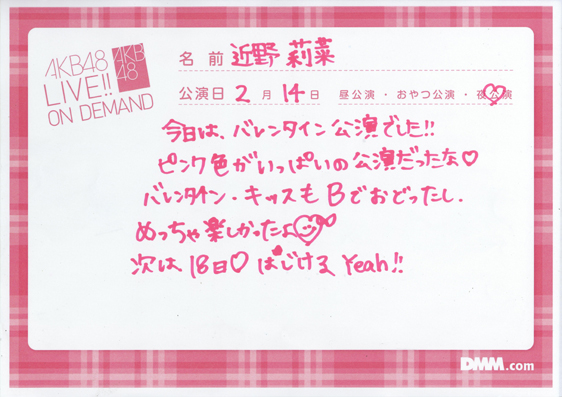 AKB48
LIVE!!
ON DEMAND
AKB
48
名前 近野 莉菜
公演日 2月14日 昼公演・おやつ公演・夜公演
今日は、バレンタイン公演でした!!
ピンク色がいっぱいの公演だったな♡
バレンタイン・キッスもBでおどったし、
めっちゃ楽しかったよ♡
次は18日♡はじける Yeah!!
DMM.com